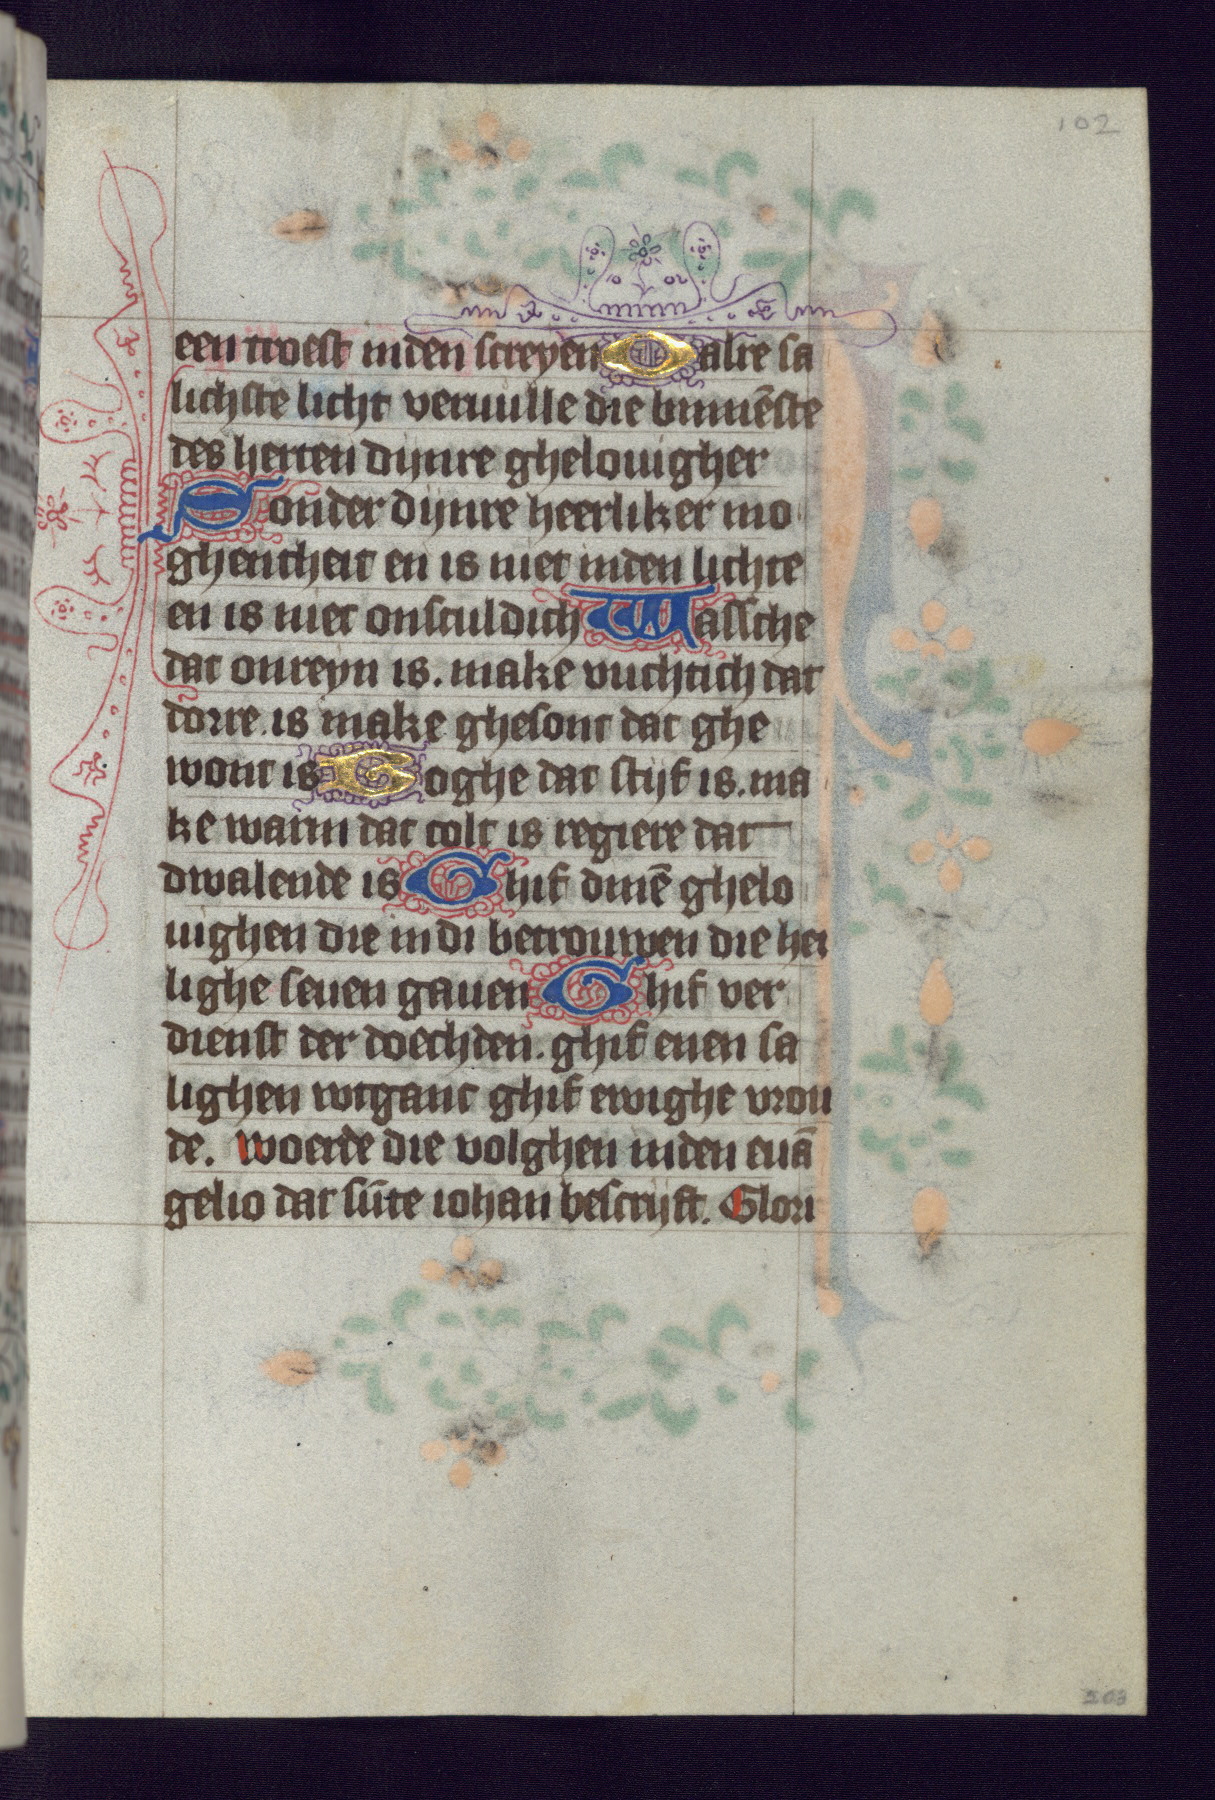 102
een troest inden screyen O alre sa
lichste licht veruulle die binnēste
des herten dijnre ghelouigher
Sonder dijnre heerliker mo
ghentheit en is niet inden lichte
en is niet onsculdich Wassche
dat onreyn is. make vuchtich dat
dorre is make ghesont dat ghe
wont is Boghe dat stijf is. ma
ke warm dat colt is regiere dat
dwalende is Ghif dinē ghelo
uighen die in di betrouwen die hei
lighe seuen gauen Ghif ver
dienst der doechden. ghif enen sa
lighen wtganc ghif ewighe vrou
de. Woerde die volghen inden euā
gelio dat sūte iohan bescrijft. Glori
203